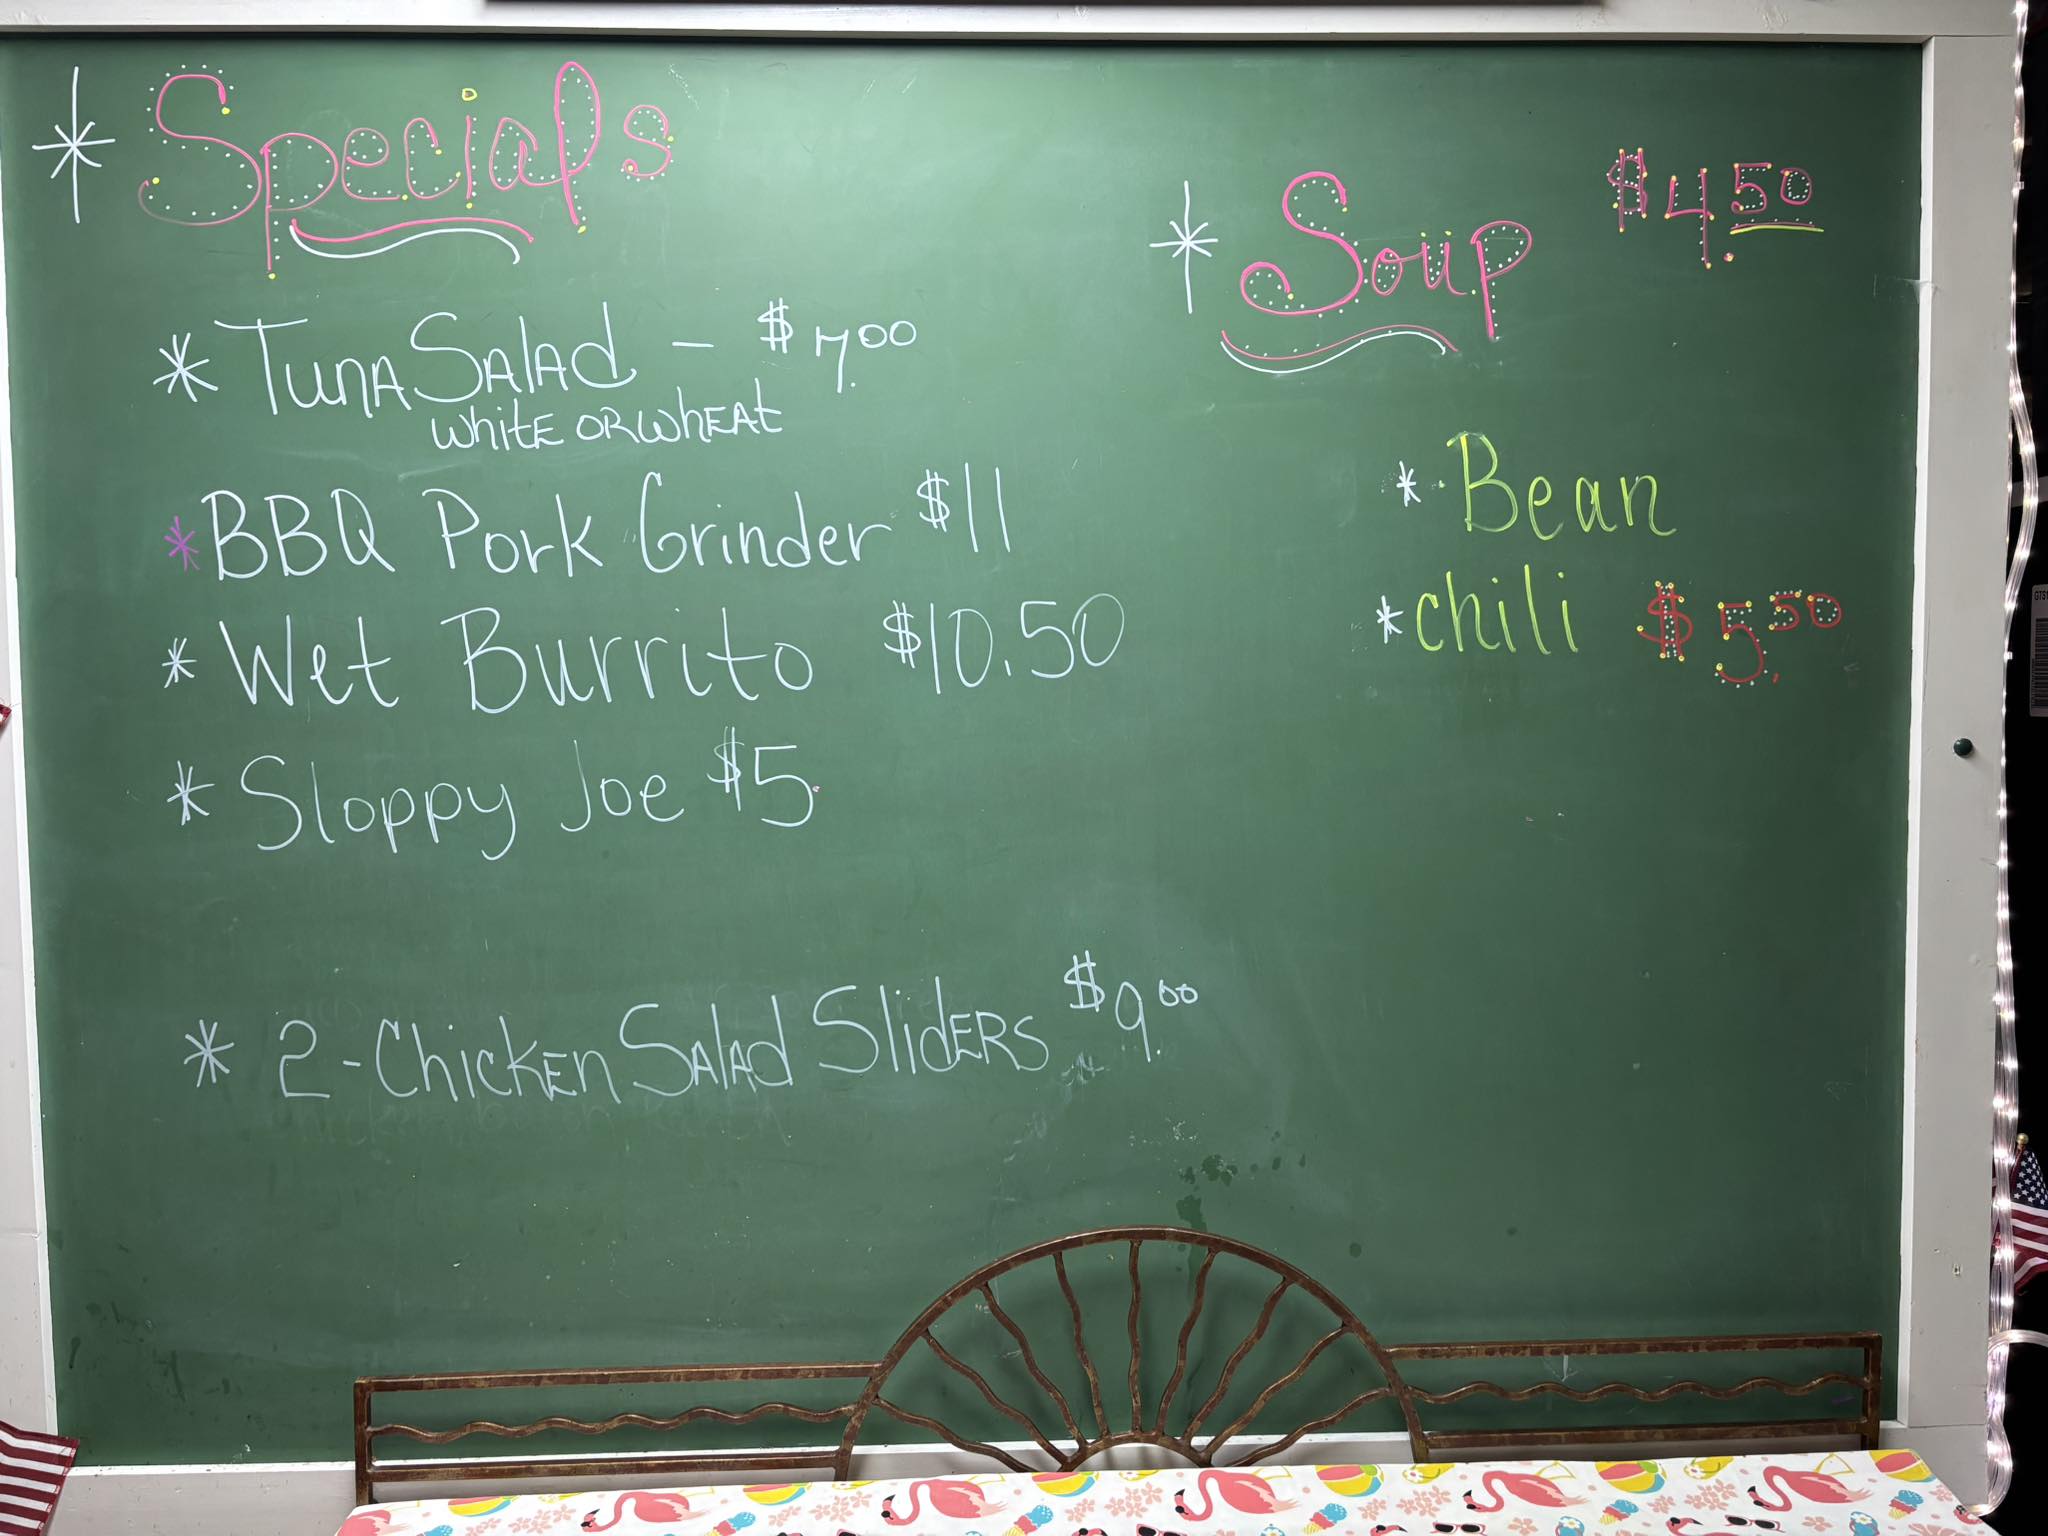 * Specials
* Tuna Salad - $7.00
White or Wheat
* BBQ Pork Grinder $11
* Wet Burrito $10.50
* Sloppy Joe $5.
* 2-Chicken Salad Sliders $9.00
* Soup $4.50
* Bean
* chili $5.50